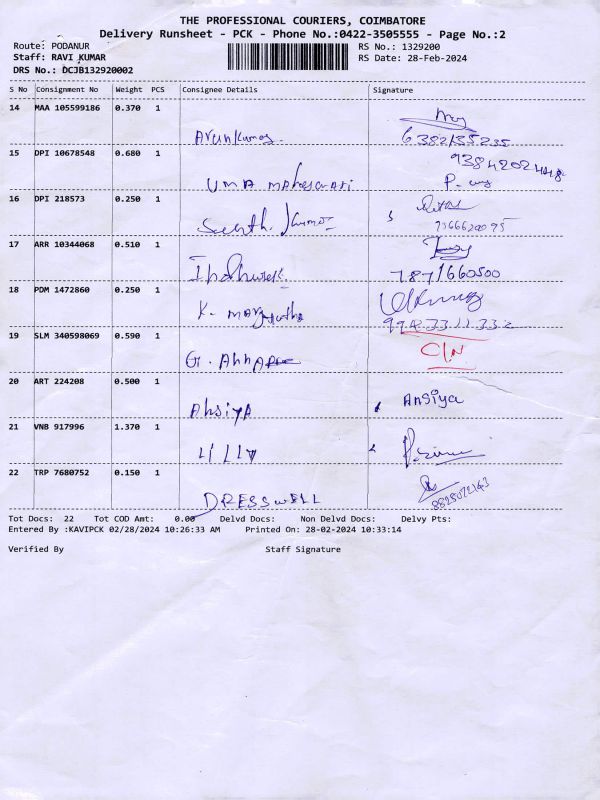 THE PROFESSIONAL COURIERS, COIMBATORE
Delivery Runsheet - PCK - Phone No.:0422-3505555 - Page No.:2
Route: PODANUR RS No.: 1329200
Staff: RAVI KUMAR RS Date: 28-Feb-2024
DRS No.: DCJB132920002
S No Consignment No Weight PCS Consignee Details Signature
14 MAA 105599186 0.370 1
Arunkumar.
15 DPI 10678548 0.680 1
UMA MAheswari
16 DPI 218573 0.250 1
17 ARR 10344068 0.510 1
7871660500
18 PDM 1472860 0.250 1
K.
19 SLM 340598069 0.590 1
G. C/N
20 ART 224208 0.500 1
AhsiyA Ansiya
21 VNB 917996 1.370 1
Lilly
22 TRP 7680752 0.150 1
DRESSWELL
Tot Docs: 22 Tot COD Amt: 0.00 Delvd Docs: Non Delvd Docs: Delvy Pts:
Entered By :KAVIPCK 02/28/2024 10:26:33 AM Printed On: 28-02-2024 10:33:14
Verified By Staff Signature